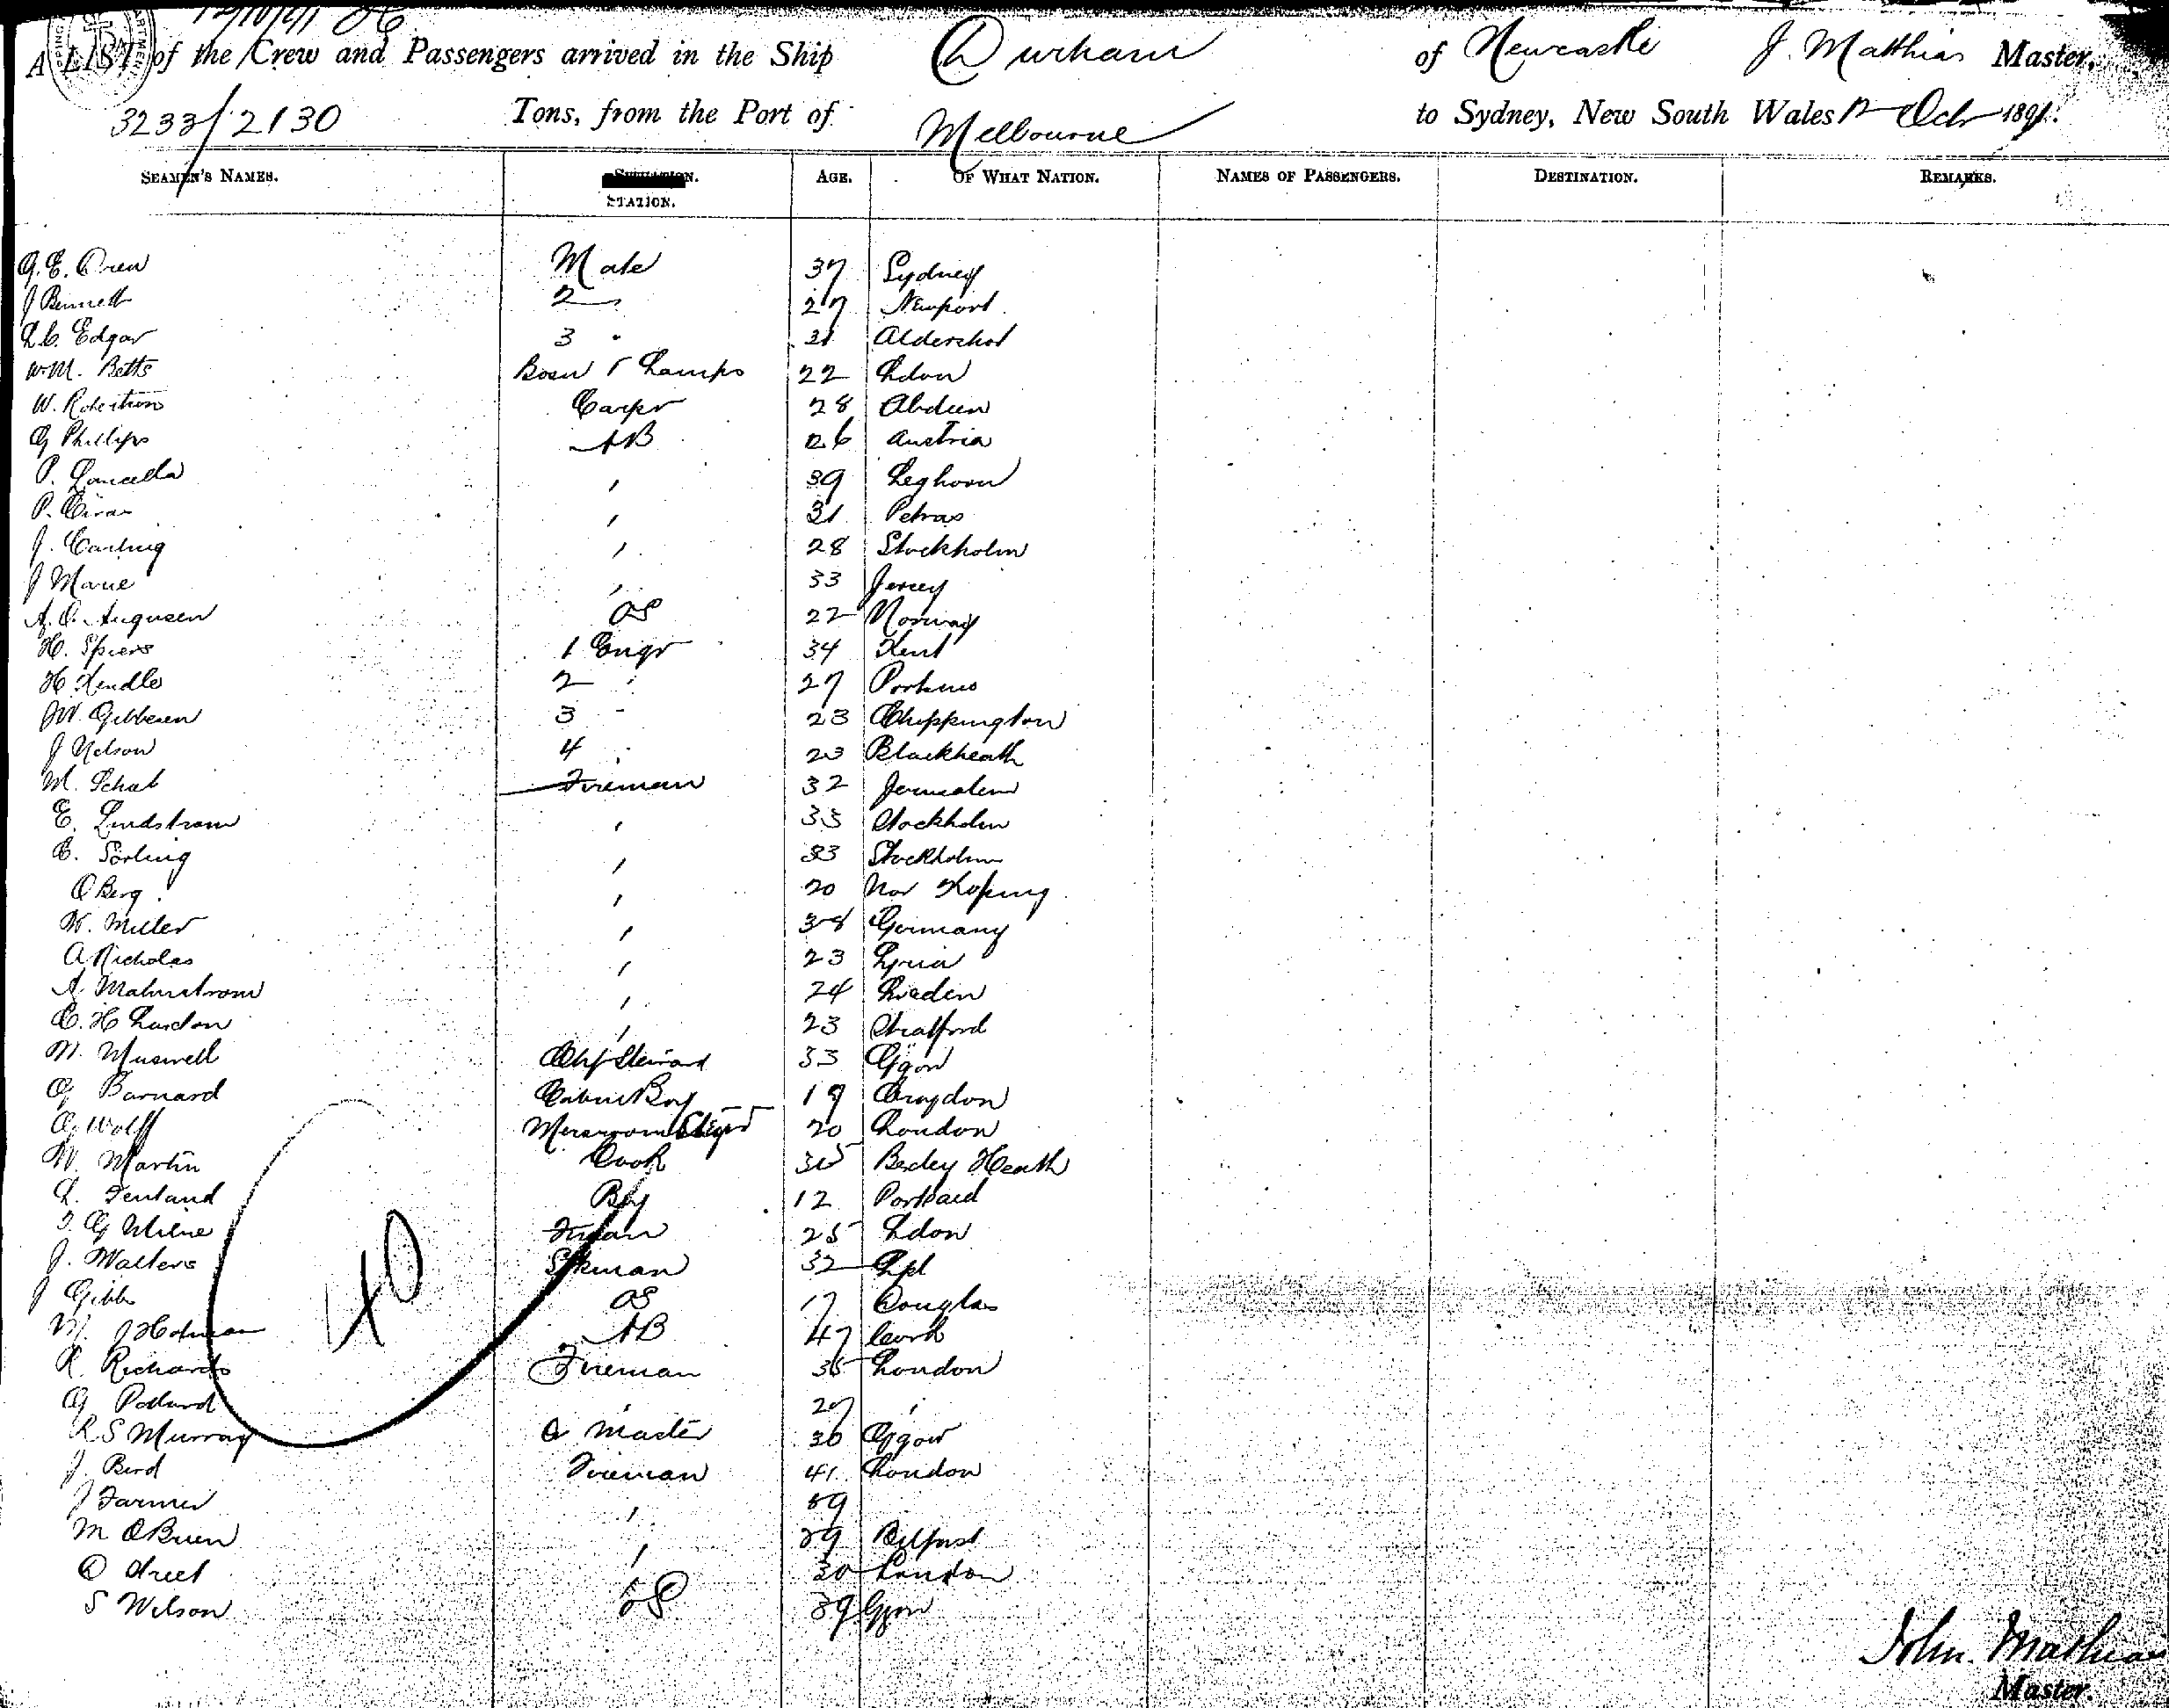 12/10/91
A LIST of the Crew and Passengers arrived in the Ship Durham of Newcastle J. Matthias Master,
3233/2130 Tons, from the Port of Melbourne to Sydney, New South Wales 12 Octr 1891.
SEAMEN'S NAMES. STATION. AGE. OF WHAT NATION. NAMES OF PASSENGERS. DESTINATION. REMARKS.
G. E. Drew Mate 37 Sydney
J Bennett 2 27 Newport
L. C. Edgar 3 " 31 Aldershot
W. M. Betts Bosn & Lamps 22 Ldon
W. Robertson Carpr 28 Abdeen
G Phillips AB 26 Austria
P. 39 Leghorn
P. 31 Petras
J. Carling 28 Stockholm
J Marie 33 Jersey
A. O. OS 22 Norway
H. Spiers 1 Engr 34 Kent
H. Kendle 2 " 27
J W. 3 " 23 Chippington
J Nelson 4 " 23 Blackheath
M. Schat Fireman 32 Jerusalem
E. Lindstrom ' 33 Stockholm
C. Sörling ' 33 Stockholm
O Berg ' 20 Nor Koping
W. Miller ' 38 Germany
A Nicholas ' 23 Syria
A. Malmstrom ' 24 Sweden
C. H ' 23 Stratford
W. Muswell Chf Steward 33 Ggow
G Barnard Cabin Boy 19 Croydon
G Wolff Messroom Stewd 20 London
W. Martin Cook 35 Bexley Heath
L. Fenland Boy 12 Portsaid
T. G Milne 25 Ldon
J. Walters 32 Lpl
J Gibbs OS 17 Douglas
M. J AB 47 Cork
R. Richards Fireman 35 London
G Pollard ' 27 '
R S Murray Q Master 30 Ggow
J Bird Fireman 41 London
J Farmer ' 59
M OBrien ' 39 Belfast
D Street ' 30 London
S Wilson 39 Ggow
40
John Mathias
Master.